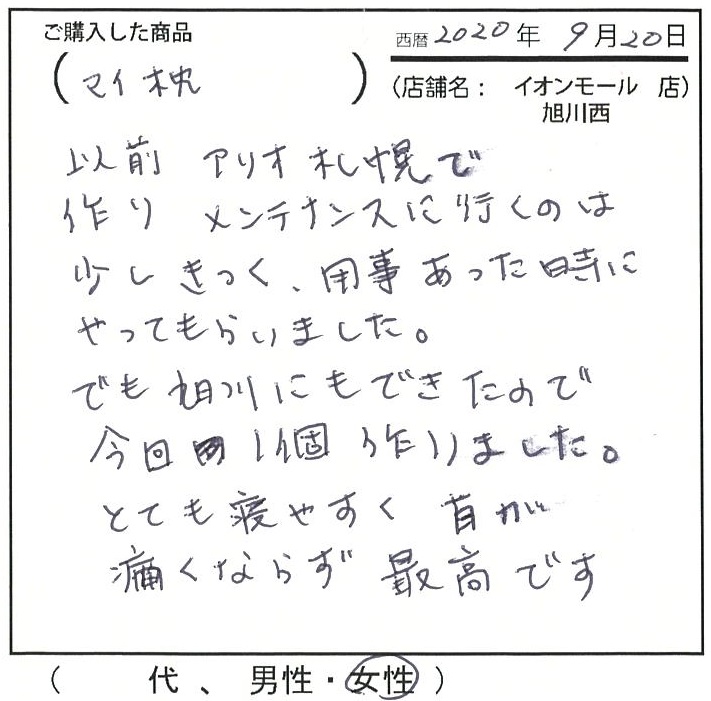 ご購入した商品
西暦2020年 9月20日
(マイ枕)
(店舗名: イオンモール 店)
旭川西
以前 アリオ札幌で
作り メンテナンスに行くのは
少しきつく、用事あった時に
やってもらいました。
でも旭川にもできたので
今回 1個作りました。
とても寝やすく 首が
痛くならず 最高です
( 代、男性・女性)